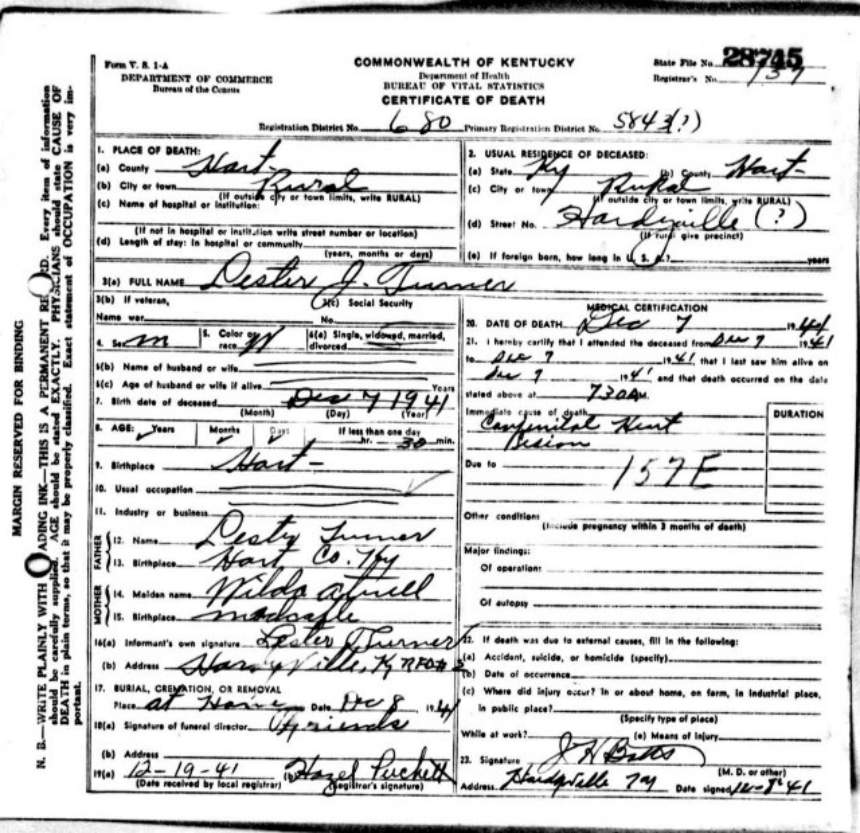 Form V. S. 1-A
DEPARTMENT OF COMMERCE
Bureau of the Census
COMMONWEALTH OF KENTUCKY
Department of Health
BUREAU OF VITAL STATISTICS
CERTIFICATE OF DEATH
State File No. 28745
Registrar's No. 137
Registration District No. 680 Primary Registration District No. 5843(?)
MARGIN RESERVED FOR BINDING
N. B.—WRITE PLAINLY WITH ADING INK—THIS IS A PERMANENT RE D. Every item of information
should be carefully supplied. AGE should be stated EXACTLY. PHYSICIANS should state CAUSE OF
DEATH in plain terms, so that it may be properly classified. Exact statement of OCCUPATION is very im-
portant.
1. PLACE OF DEATH:
(a) County Hart
(b) City or town Rural
(If outside city or town limits, write RURAL)
(c) Name of hospital or institution:
(If not in hospital or institution write street number or location)
(d) Length of stay: In hospital or community
(years, months or days)
2. USUAL RESIDENCE OF DECEASED:
(a) State Ky (b) County Hart
(c) City or town Rural
(If outside city or town limits, write RURAL)
(d) Street No. Hardyville (?)
(If rural give precinct)
(e) If foreign born, how long in U. S. A.? years
3(a) FULL NAME Lester J. Turner
3(b) If veteran, 3(c) Social Security
Name war No.
4. Sex m 5. Color or race W 6(a) Single, widowed, married, divorced
6(b) Name of husband or wife
6(c) Age of husband or wife if alive Years
7. Birth date of deceased Dec 7 1941
(Month) (Day) (Year)
8. AGE: Years Months Days If less than one day
hr. 30 min.
9. Birthplace Hart
10. Usual occupation
11. Industry or business
FATHER
12. Name Lester Turner
13. Birthplace Hart Co. Ky
MOTHER
14. Maiden name Wilda
15. Birthplace
16(a) Informant's own signature Lester Turner
(b) Address Hardyville, Ky RFD# 3
17. BURIAL, CREMATION, OR REMOVAL
Place at Home Date Dec 8 1941
18(a) Signature of funeral director friends
(b) Address
19(a) 12-19-41 (b) Hazel Puckett
(Date received by local registrar) (Registrar's signature)
MEDICAL CERTIFICATION
20. DATE OF DEATH Dec 7 1941
21. I hereby certify that I attended the deceased from Dec 7 1941
to Dec 7 1941 that I last saw him alive on
Dec 7 1941 and that death occurred on the date
stated above at 730 AM.
Immediate cause of death
Congenital Heart
Lesion
DURATION
Due to 157E
Other conditions
(Include pregnancy within 3 months of death)
Major findings:
Of operation:
Of autopsy
22. If death was due to external causes, fill in the following:
(a) Accident, suicide, or homicide (specify)
(b) Date of occurrence
(c) Where did injury occur? In or about home, on farm, in industrial place,
in public place?
(Specify type of place)
While at work? (e) Means of Injury
23. Signature J H Botts
(M. D. or other)
Address Hardyville Ky Date signed 12-8-41